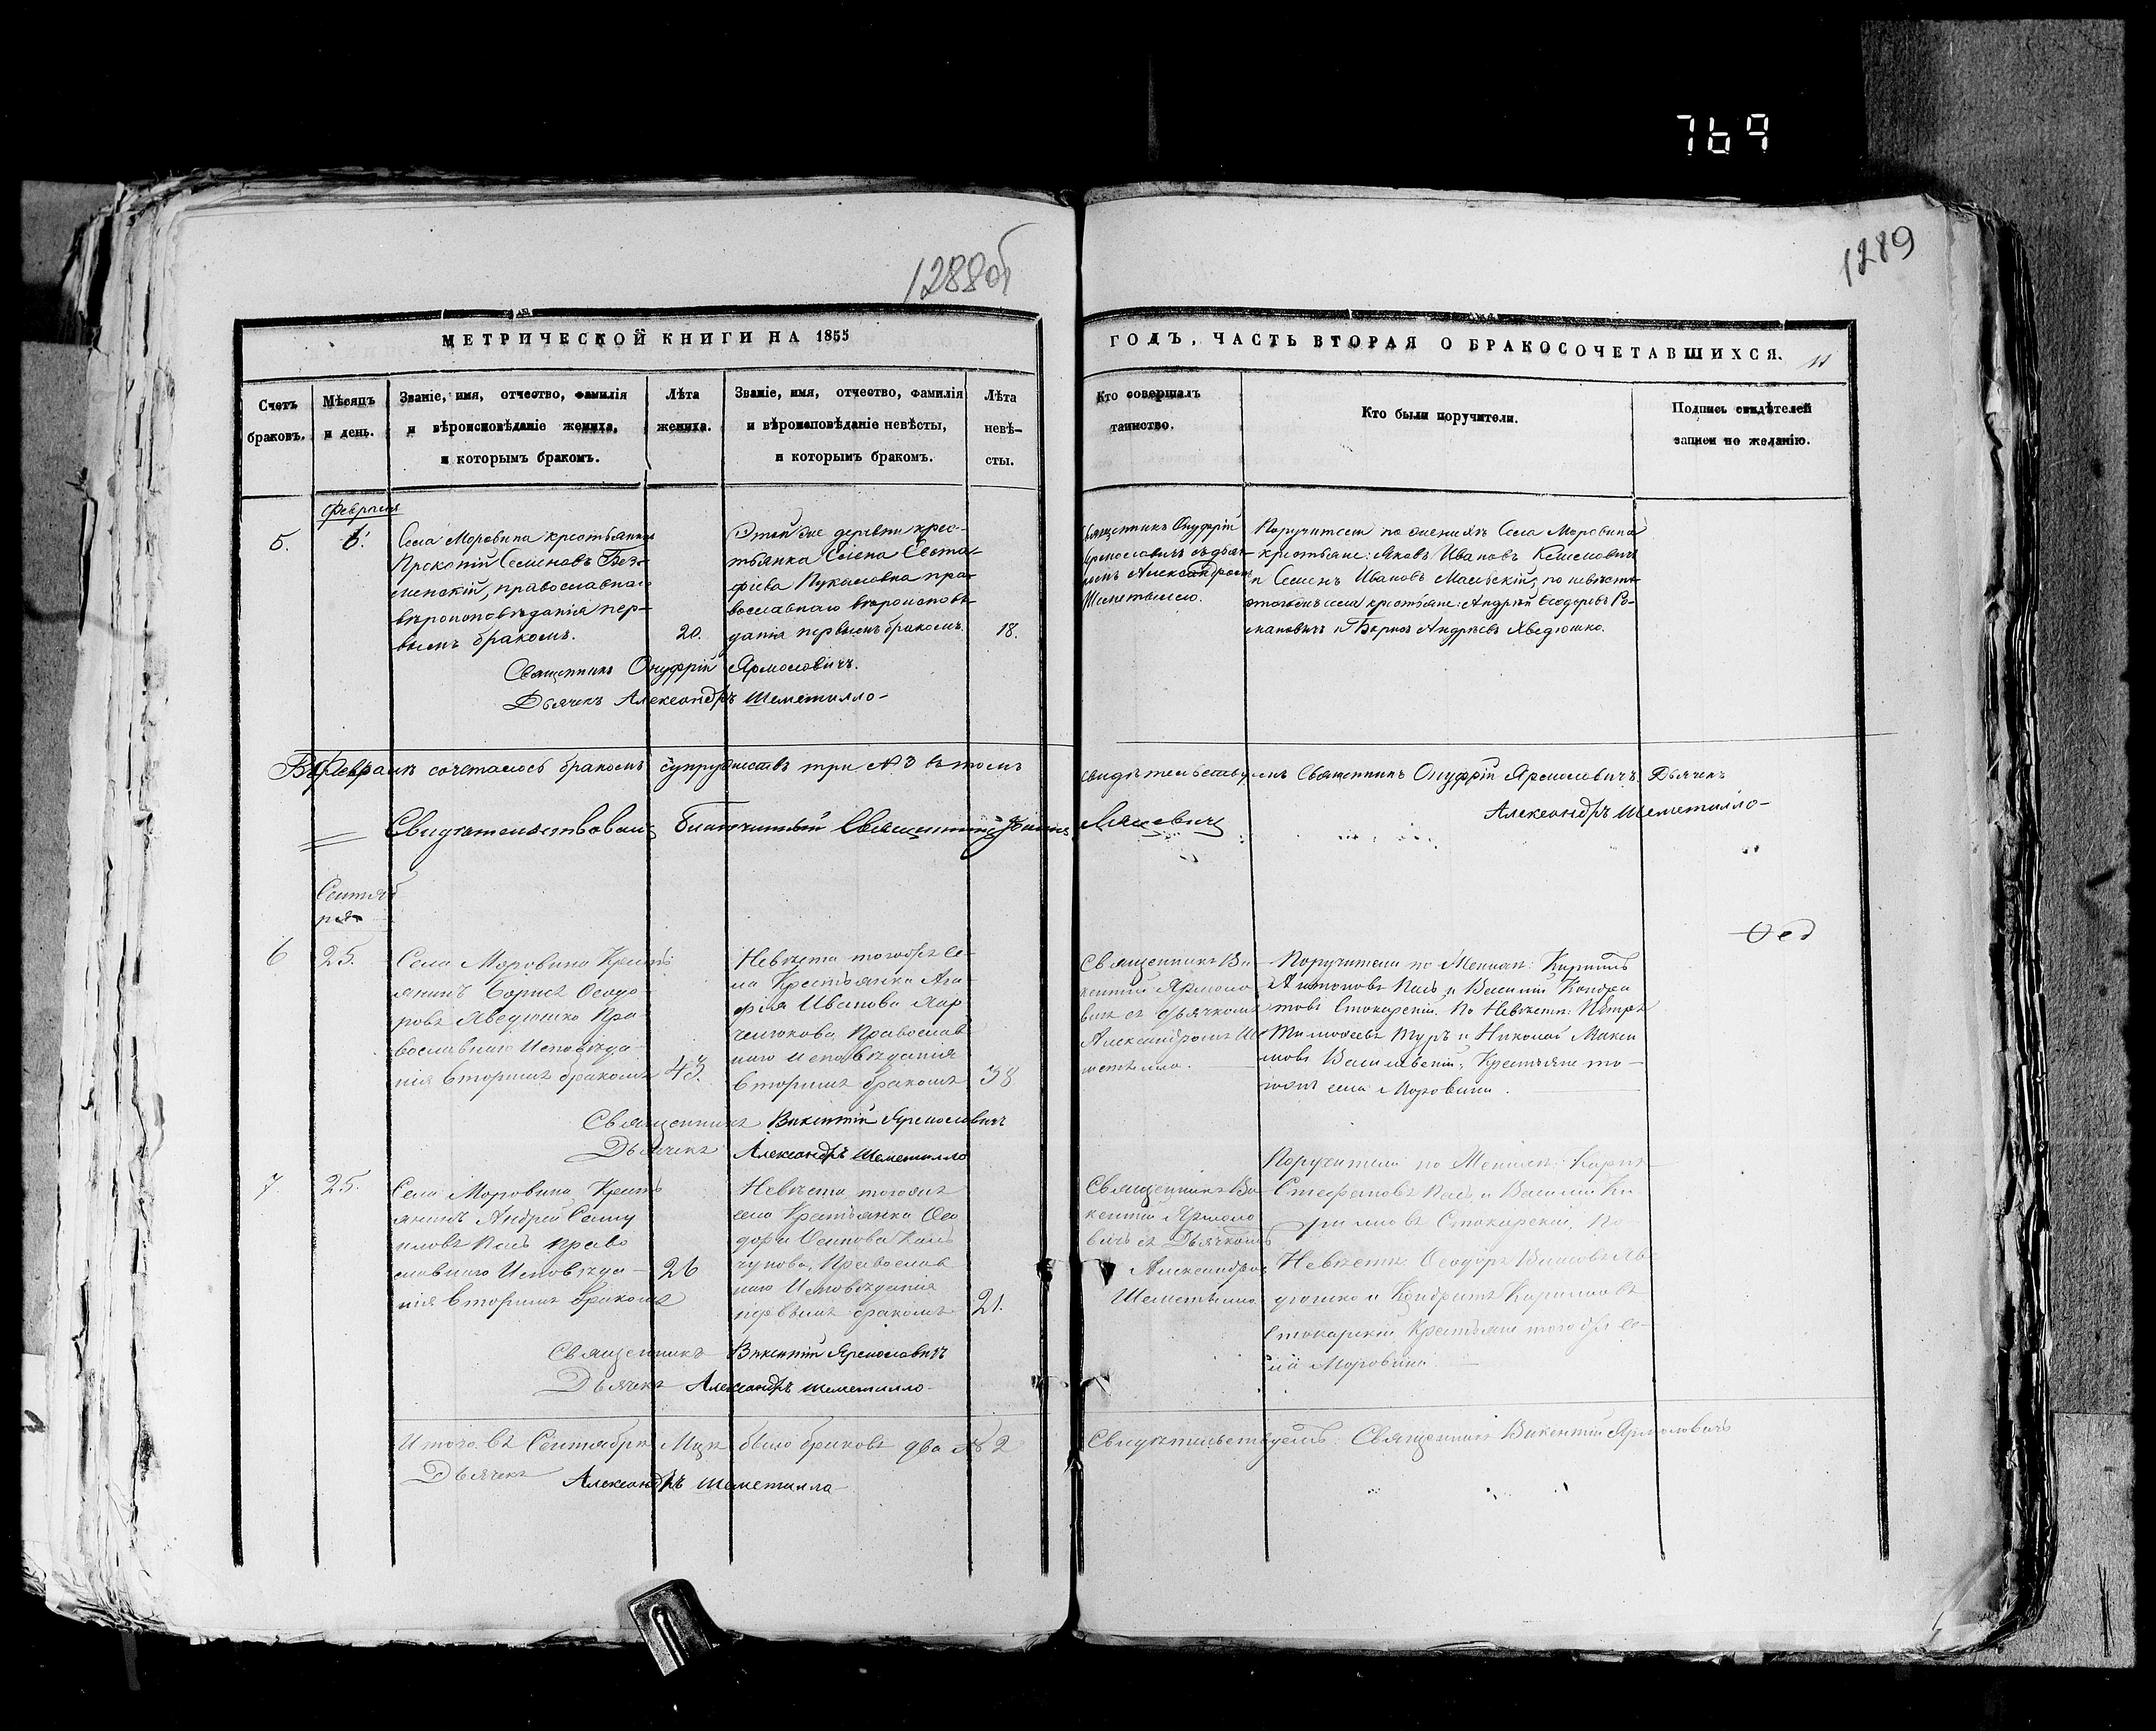 769
1288об
1289
МЕТРИЧЕСКОЙ КНИГИ НА 1855
ГОДЪ, ЧАСТЬ ВТОРАЯ О БРАКОСОЧЕТАВШИХСЯ. 11
Счетъ
браковъ.
Мѣсяцъ
и день.
Званіе, имя, отчество, фамилія
и вѣроисповѣданіе жениха,
и которымъ бракомъ.
Лѣта
жениха.
Званіе, имя, отчество, фамилія
и вѣроисповѣданіе невѣсты,
и которымъ бракомъ.
Лѣта
невѣ-
сты.
Кто совершалъ
таинство.
Кто были поручители.
Подпись свидѣтелей
записи по желанію.
Февраля
5.
6.
Села Моровина крестьянинъ
Прокопій Семеновъ Без-
менскій, православнаго
вѣроисповѣданія пер-
вымъ бракомъ.
20.
Этой же деревни крес-
тьянка Елена Еста-
фіева Лукасовна пра-
вославнаго вѣроисповѣ-
данія первымъ бракомъ.
18.
Священникъ Онуфрій
Ярмоловичъ съ дьяч-
комъ Александромъ
Шеметылло.
Поручители по женихѣ Села Моровина
крестьяне: Яковъ Ивановъ
и Семенъ Ивановъ Маевскій, по невѣстѣ
тогожъ села крестьяне: Андрей Ѳеодоровъ Ро-
мановичъ и Борисъ Андреевъ Яведюшко.
Священникъ Онуфрій Ярмоловичъ.
Дьячекъ Александръ Шеметилло
Въ Февралѣ сочеталось бракомъ супружествъ три № 3 въ томъ
свидѣтельствуемъ Священникъ Онуфрій Ярмоловичъ Дьячекъ
Александръ Шеметилло
Свидетельствовалъ Благочинный Священникъ Іоаннъ
Сентяб
ря
6
25.
Села Моровина Кресть
янинъ Борисъ Ѳеодо-
ровъ Яведюшко Пра-
вославнаго Исповѣда-
нія вторымъ бракомъ
43.
Невѣста тогожъ се-
ла Крестьянка Ага-
фія Иванова Кар
Православ
наго исповѣданія
вторымъ бракомъ
38
Священникъ Ви-
кентій Ярмоло
вичъ съ Дьячкомъ
Александромъ Ше
метилло.
Поручители по Женихѣ: Кириллъ
Антоновъ Пась, и Василій Кондра
товъ Стокарскій. По Невѣстѣ: Петръ
Тимофеевъ Туръ и Николай Макси
мовъ Василевскій, Крестьяне то-
гожъ села Моровина.
Священникъ Викентій Ярмоловичъ
Дьячекъ Александръ Шеметилло
7
25.
Села Моровина Кресть
янинъ Андрей Саму
иловъ Пась Право
славнаго Исповѣда-
нія вторымъ бракомъ
26
Невѣста тогожъ
села Крестьянка Ѳео
дора Осипова
Православ
наго Исповѣданія
первымъ бракомъ
21.
Священникъ Ви
кентій Ярмоло
вичъ съ Дьячкомъ
Александромъ
Шеметилло
Поручители по Женихѣ:
Стефановъ Пась, и Василій Ки
рилловъ Стокарскій, По
Невѣстѣ: Ѳеодоръ Яве
дюшко и Кондратъ Кирилловъ
Стокарскій Крестьяне тогожъ се-
ла Моровина
Священникъ Викентій Ярмоловичъ
Дьячекъ Александръ Шеметилло
Итого въ Сентябрѣ Мцѣ было браковъ два № 2
Свидѣтельствуемъ: Священникъ Викентій Ярмоловичъ
Дьячекъ Александръ Шеметилло